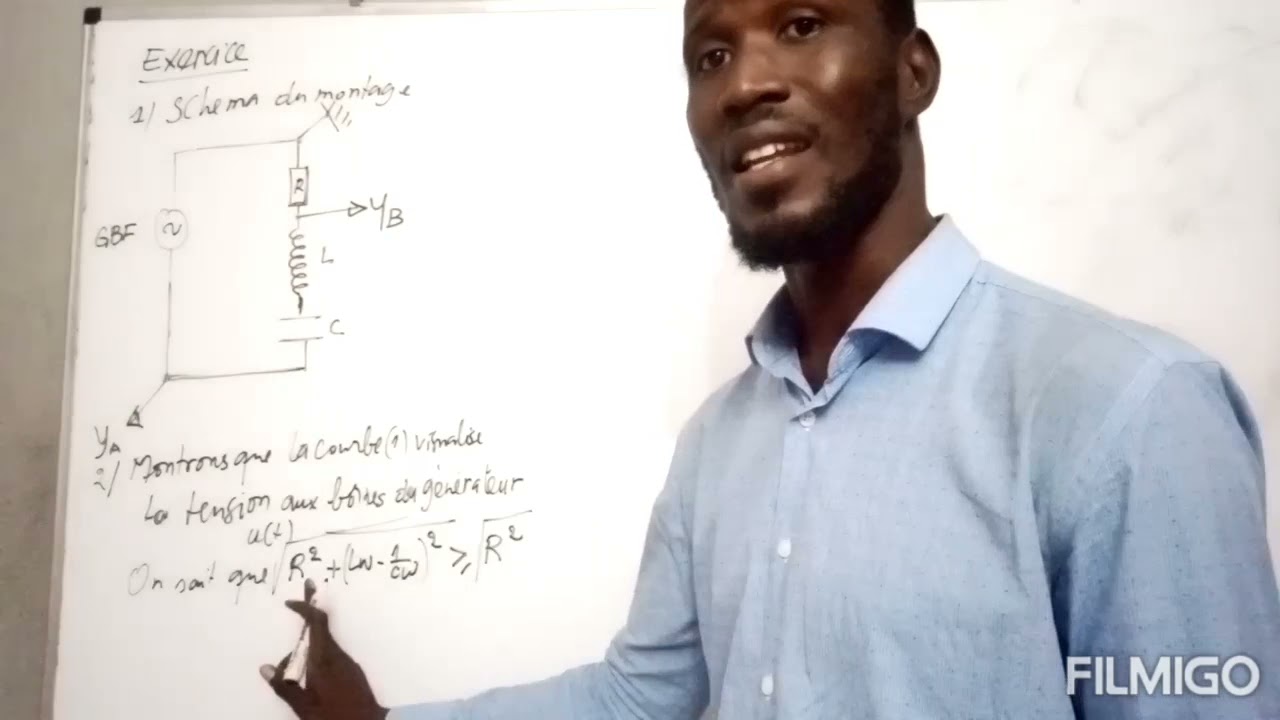 Exercice
1/ Schema du montage
R
YB
GBF
~
L
C
YA
2/ Montrons que la courbe (1) visualise
la tension aux bornes du générateur
u(t)
On sait que √R² + (Lw - 1/cw)² ≥ √R²
FILMIGO